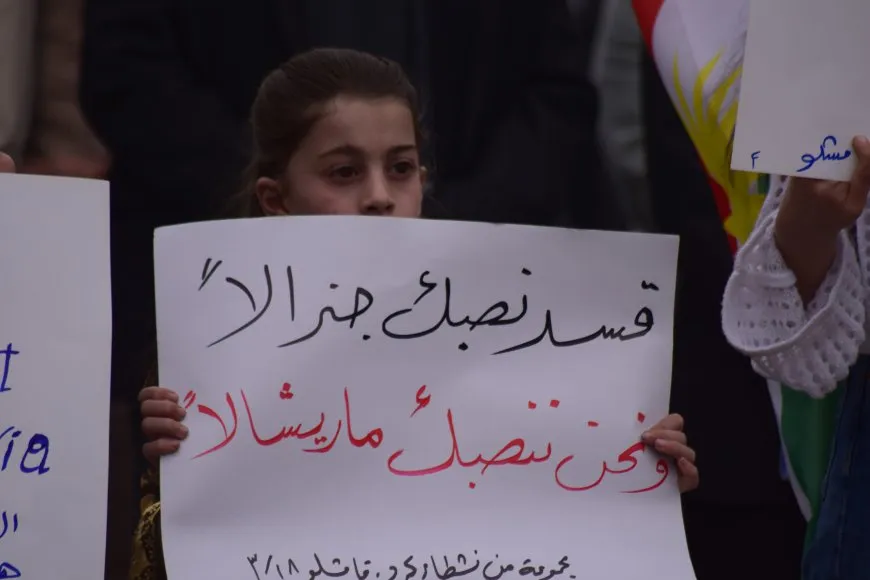 قسد نصبك جنرالاً
ونحن ننصبك ماريشالاً
مجموعة من نشطاء كرد. قامشلو ٣/١٨